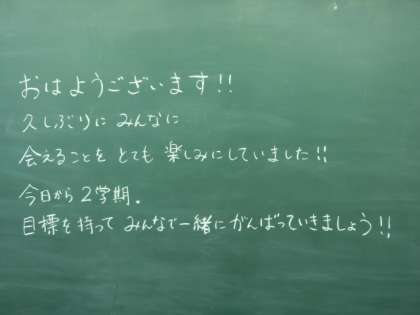 おはようございます!!
久しぶりに みんなに
会えることを とても 楽しみにしていました!!
今日から 2学期.
目標を持って みんなで一緒に がんばっていきましょう!!